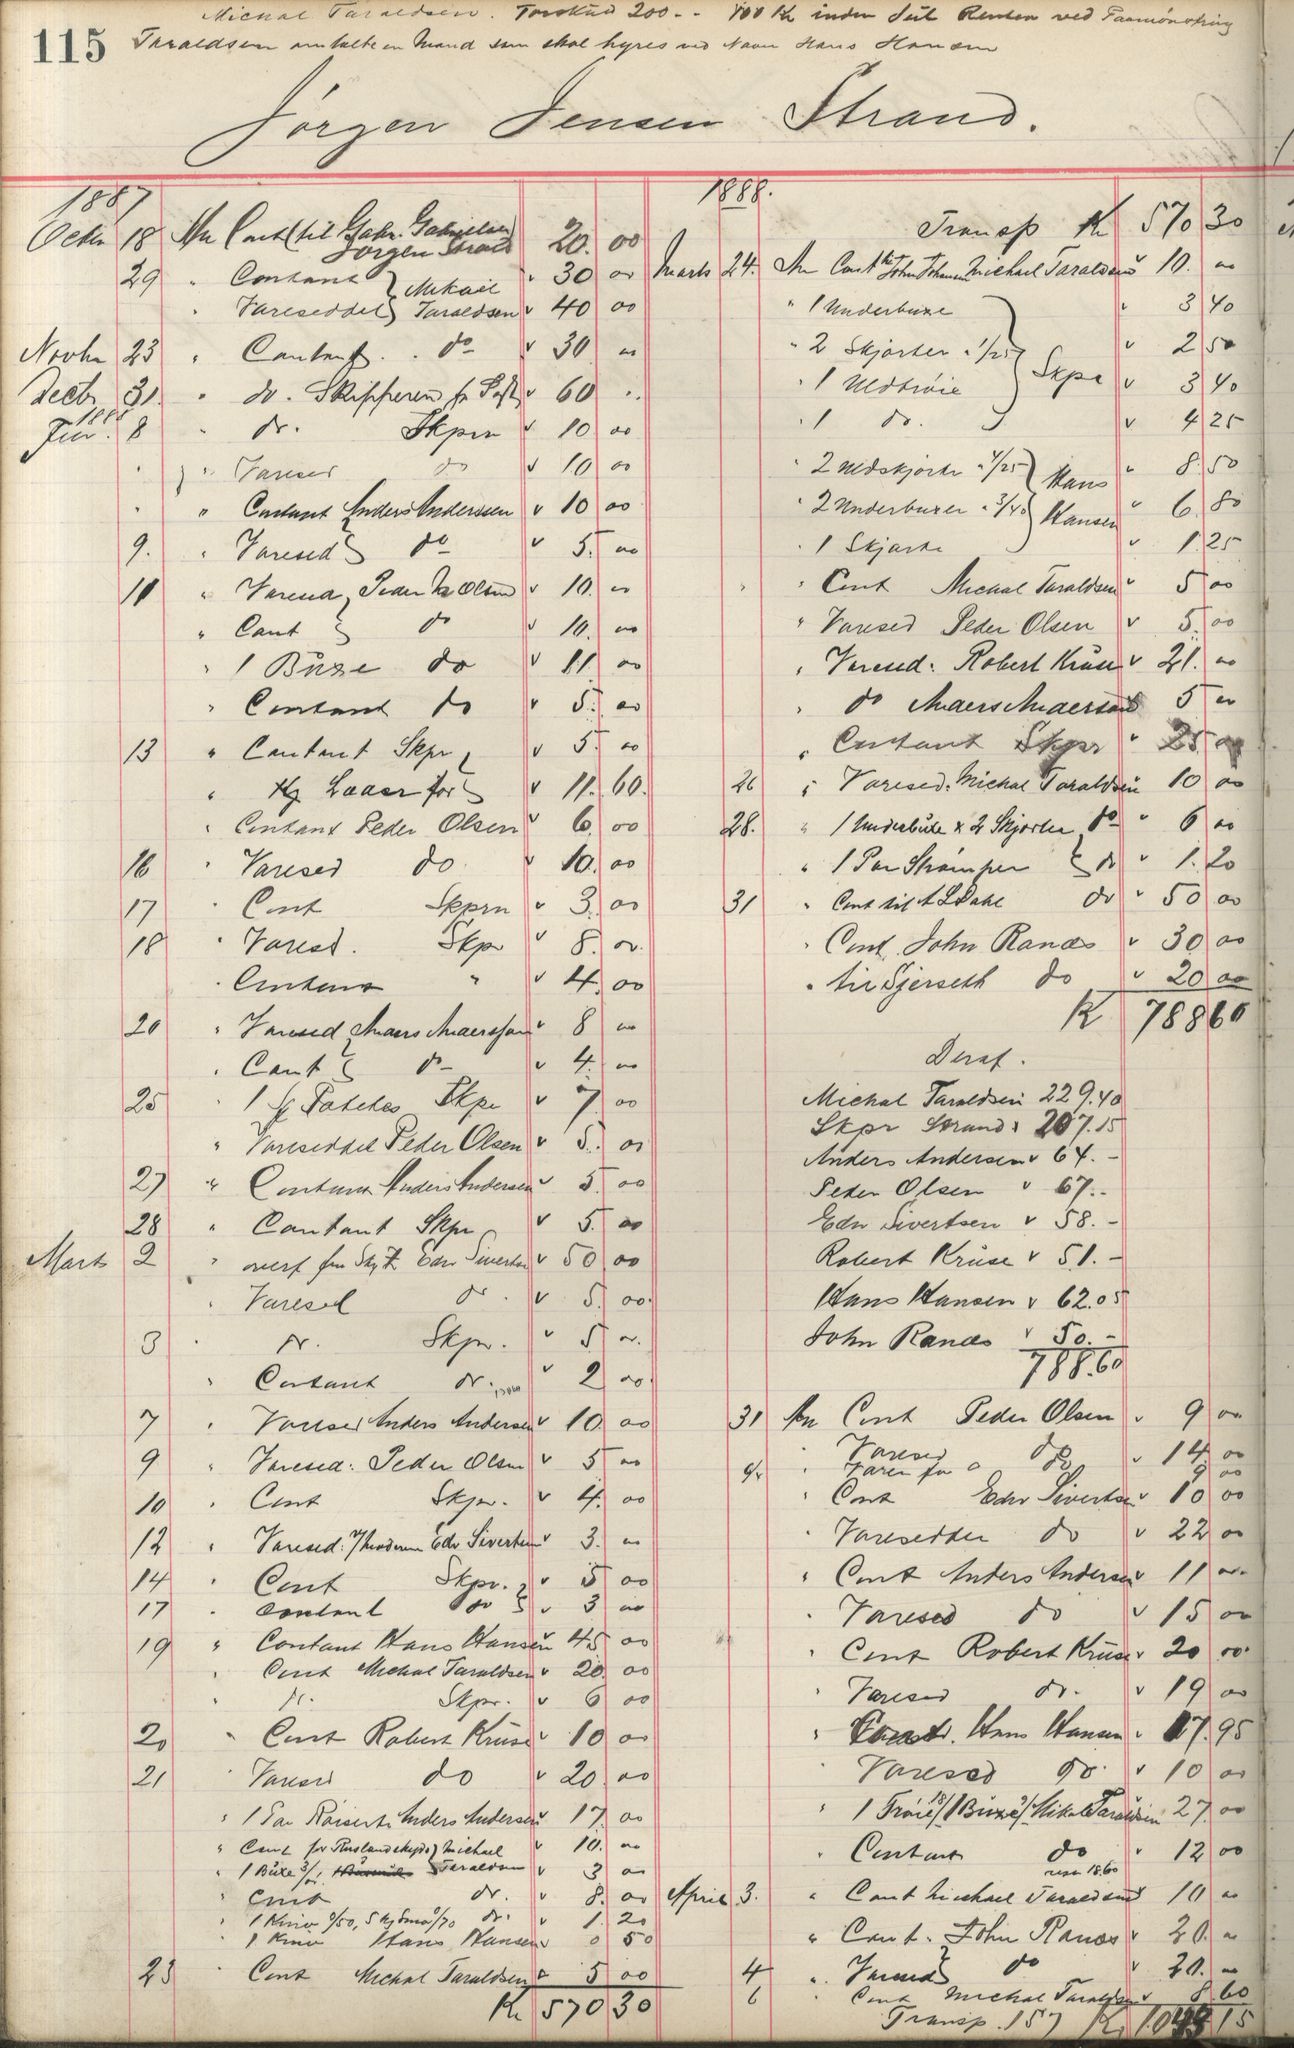 115
Michal Taraldsen. Forskud 200.- 100 Kr inden Jul Resten ved Paamønstring
Taraldsen en Mand som skal hyres ved Navn Hans Hansen
Jørgen Jensen Strand.
1887
Octbr 18 An Cont (til Gabr. Gabrielsen Jørgen Strand) 20. 00
29 " Contant } Mikail " 30 00
" Vareseddel } Taraldsen " 40 00
Novbr 23 " Contant . . do " 30 00
Decbr 31. " do. Skipperen " 60 "
1888
8 " do. Skprn " 10 00
" " Varesed do " 10 00
" " Contant Anders Anderssen " 10 00
9. " Varesed } do " 5. 00
11 " Varesed Peder Olsen " 10. 00
" Cont } do " 10. 00
" 1 Buxe do " 11. 00
" Contant do " 5. 00
13 " Contant Skpr " 5. 00
" for " 11. 60.
" Contant Peder Olsen " 6. 00
16 " Varesed do " 10. 00
17 " Cont Skprn " 3. 00
18 " Varesd. Skpr " 8. 00
" Contant " " 4. 00
20 " Varesed Anders Anderssen " 8 00
" Cont } do " 4. 00
25 " 1 Skpr " 7. 00
" Vareseddel Peder Olsen " 5. 00
27 " Contant Anders Andersen " 5. 00
28 " Contant Skpr " 5. 00
Marts 2 " overf fra Edv Sivertsen " 50 00
" Varesed do " 5. 00
3 " do. Skpr. " 5 00
" Contant do. " 2 00
7 " Varesed Anders Andersen " 10. 00
9 " Varesed: Peder Olsen " 5 00
10 " Cont Skpr. " 4. 00
12 " Varesed: Edv Sivertsen " 3. 00
14 " Cont Skpr. " 5 00
17 " Contant do " 3 00
19 " Contant Hans Hansen " 45 00
" Cont Michal Taraldsen " 20 00
" do. Skpr. " 6 00
20 " Cont Robert Krüse " 10 00
21 " Varesed do " 20. 00
" 1 Par Anders Andersen " 17. 00
" Cont for } Michael " 10. 00
" 1 Buxe 3/ } Taraldsen " 3 00
" Cont do. " 8. 00
" 1 Kniv 0/50, 5 0/70 do. " 1. 20
" 1 Kniv Hans Hansen 0 50
23 " Cont Michal Taraldsen " 5 00
Kr 570 30
1888.
Transp Kr 570 30
Marts 24. An Cont John Johnsen Michael Taraldsen " 10. 00
" 1 Underbuxe " 3 40
" 2 Skjorter a 1/25 } Skpr " 2 50
" 1 Uldtrøie " 3 40
" 1 do. " 4 25
" 2 Uldskjorte a 4/25 } Hans " 8. 50
" 2 Underbuxer a 3/40 } Hansen " 6. 80
" 1 Skjorte " 1. 25
" Cont Michal Taraldsen " 5 00
" Varesed Peder Olsen " 5. 00
" Varesed: Robert Krüse " 21. 00
" do Anders Anderssen 5 00
" Contant Skpr " 25 00
26 " Varesed: Michal Taraldsen 10 00
28. " 1 Underbuxe & 2 Skjorter do " 6 00
" 1 Par Strømper } do " 1. 20
31 " Cont til A L Dahl do " 50 00
" Cont. John Ranæs " 30 00
" til Sjerseth do " 20 00
K 788 60
Deraf.
Michal Taraldsen 229.40
Skpr Strand " 207.15
Anders Andersen " 64. -
Peder Olsen " 67. -
Edv Sivertsen " 58. -
Robert Krüse " 51. -
Hans Hansen " 62.05
John Ranæs " 50. -
788.60
31 An Cont Peder Olsen " 9 00
" Varesed do " 14. 00
" Varer for do 9 00
" Cont Edv Sivertsen " 10 00
" Vareseddel do " 22 00
" Cont Anders Andersen " 11 00
" Varesed do " 15 00
" Cont Robert Krüse " 20 00
" Varesed do. " 19 00
" Hans Hansen " 17. 95
" Varesed do. " 10 00
" 1 Trøie 18/ 1 Buxe 9/ Mikal Taraldsen 27. 00
" Contant do " 12 00
rest 18.60
April 3. " Cont Michael Taraldsen " 10 00
" Cont. John Ranæs " 20. 00
4 " Varesed } do " 20. 00
6 " Cont Michal Taraldsen " 8 60
Transp. 157 Kr 1043 15